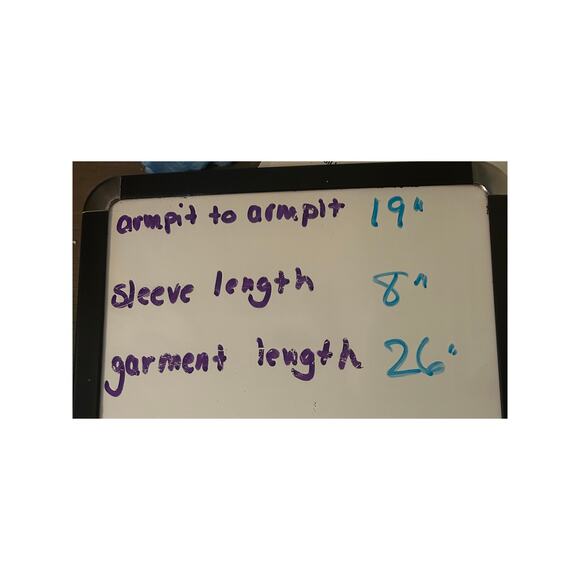 armpit to armpit 19"
sleeve length 8"
garment length 26"